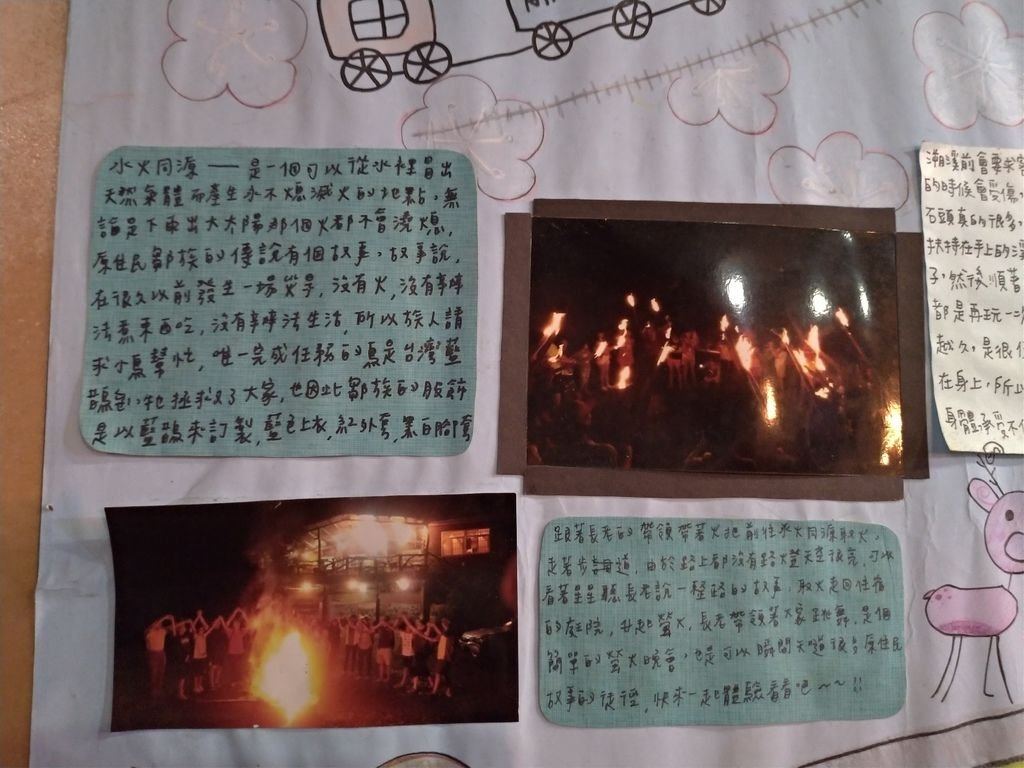 水火同源——是一個可以從水裡冒出
天然氣體而產生永不熄滅火的地點,無
論是下雨出大太陽那個火都不會澆熄,
原住民鄒族的傳說有個故事,故事說,
在很久以前發生一場災害,沒有火,沒有辦
法煮東西吃,沒有辦法生活,所以族人請
求小鳥幫忙,唯一完成任務的鳥是台灣藍
鵲,牠拯救了大家,也因此鄒族的服飾
是以藍鵲來訂製,藍色上衣,紅外套,黑白腳套
跟著長老的帶領帶著火把前往水火同源取火,
走著步道,由於路上都沒有路燈天空很亮,可以
看著星星聽長老說一整路的故事,取火走回住宿
的庭院,升起營火,長老帶領著大家跳舞,是個
簡單的營火晚會,也是可以瞬間知道很多原住民
故事的徒徑,快來一起體驗看看吧~~!!
溯溪前會要求
的時候會受傷
石頭真的很多,
扶持在手上的
子,然後順著
都是再玩一二
越久,是很
在身上,所以
身體承受不